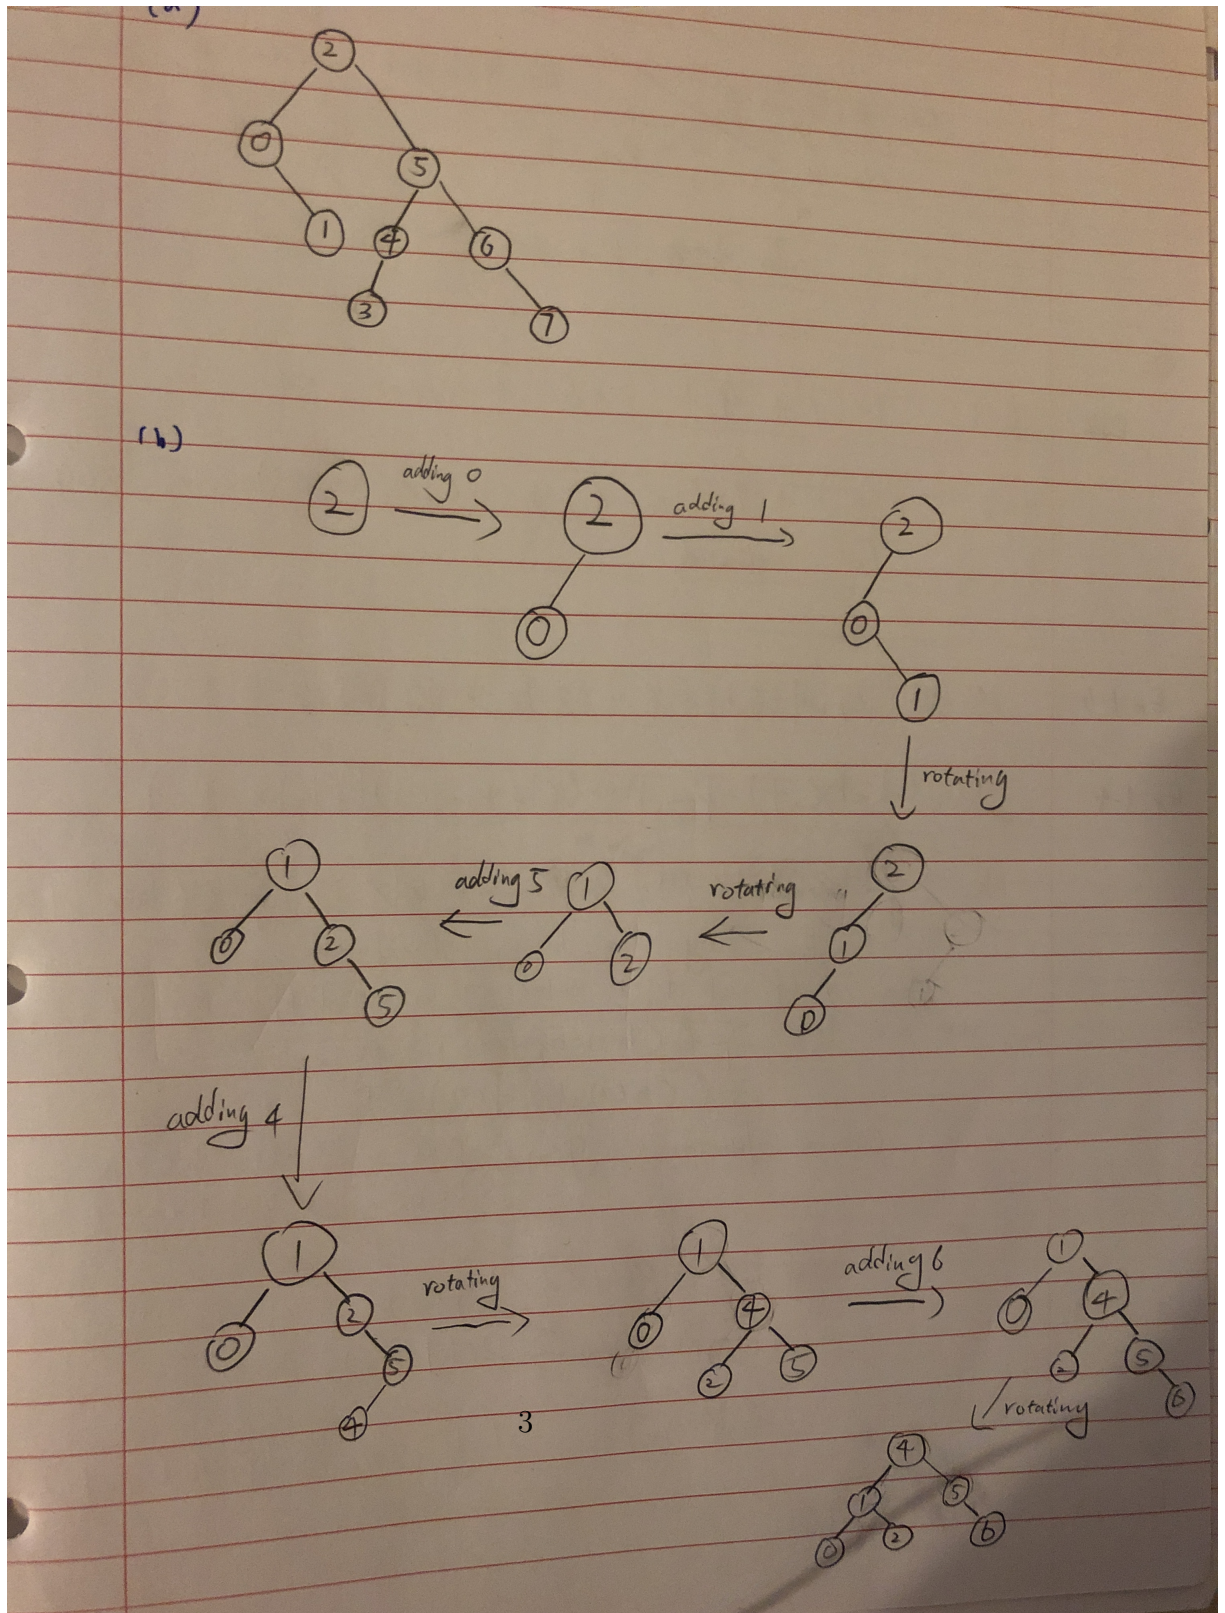 (a)
2
0
5
1
4
6
3
7
(b)
2
adding 0
2
0
adding 1
2
0
1
rotating
2
1
0
rotating
1
0
2
adding 5
1
0
2
5
adding 4
1
0
2
5
4
rotating
1
0
4
2
5
adding 6
1
0
4
2
5
6
rotating
4
1
5
0
2
6
3